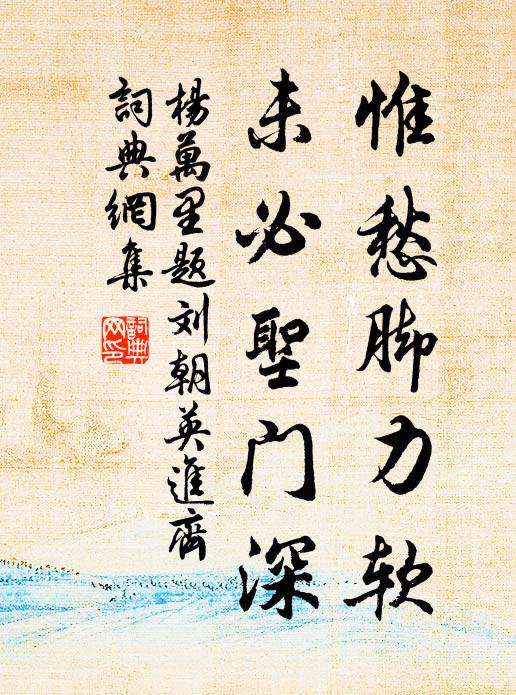 惟愁脚力软
未必聖门深
楊萬里题刘朝英進齊
詞典網集
詞典
网印